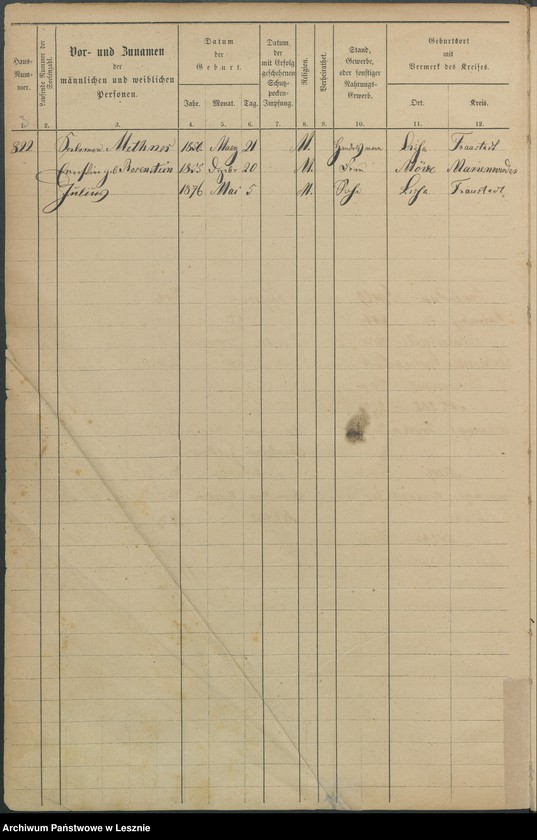 Haus-Num-mer.
Laufende Nummer der Seelenzahl.
Vor- und Zunamen
der
männlichen und weiblichen
Personen.
Datum
der
Geburt.
Jahr. Monat. Tag.
Datum
der
mit Erfolg
geschehenen
Schutz-
pocken-
Impfung.
Religion.
Verheirathet.
Stand,
Gewerbe,
oder sonstiger
Nahrungs-
Erwerb.
Geburtsort
mit
Vermerk des Kreises.
Ort. Kreis.
1. 2. 3. 4. 5. 6. 7. 8. 9. 10. 11. 12.
822 Methner 21 M. Lissa Fraustadt
geb. Rosenstein 20 M. Frau Marienwerder
Julius 1876 Mai 5 M. Sohn Lissa Fraustadt
Archiwum Państwowe w Lesznie